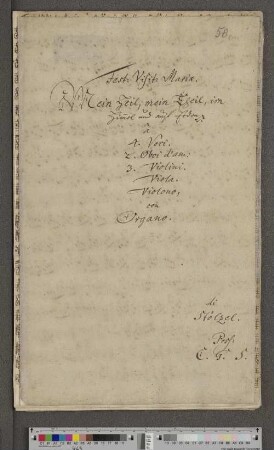 58.
Festo Visit: Mariæ.
Mein Heil, mein Theil, im
Himel und auf Erden
a
4. Voci.
2. Oboi d'am:
3. Violini.
Viola.
Violono,
con
Organo.
di
Stölzel.
Prof.
C. G. S.